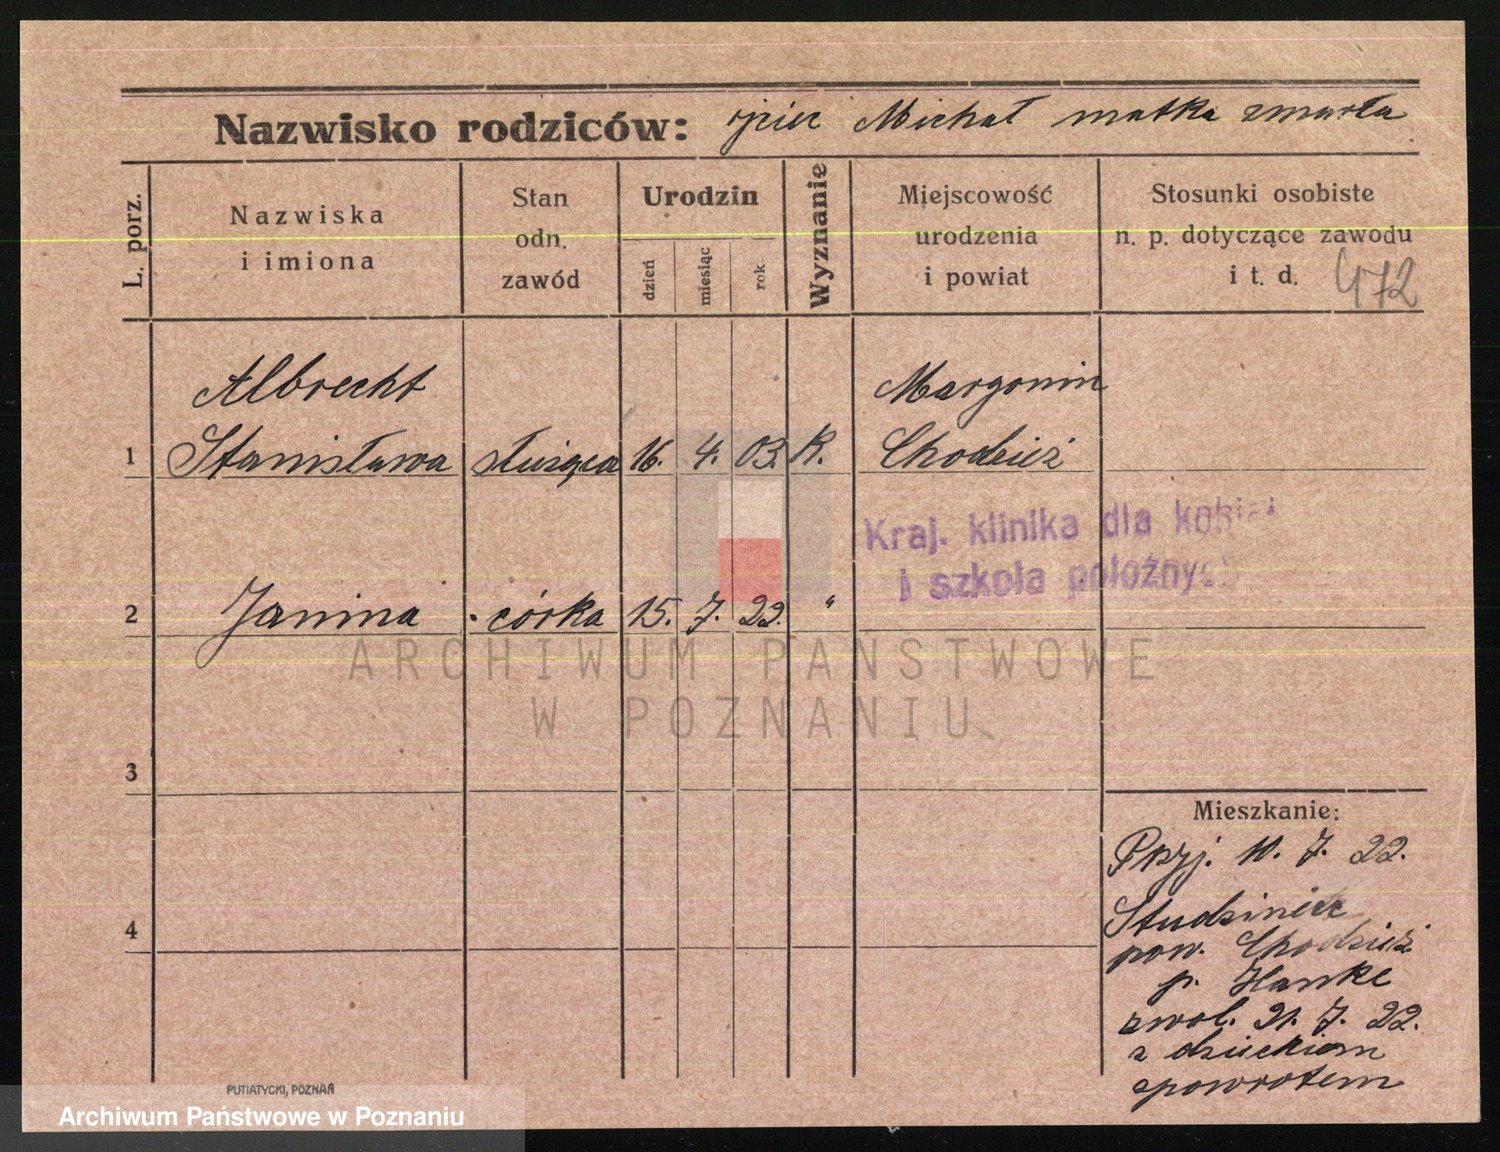 Nazwisko rodziców: ojciec Michał matka zmarła
L. porz.
Nazwiska
i imiona
Stan
odn.
zawód
Urodzin
dzień
miesiąc
rok
Wyznanie
Miejscowość
urodzenia
i powiat
Stosunki osobiste
n. p. dotyczące zawodu
i t. d.
472
Albrecht Margonin
1 Stanisława służąca 16. 4. 03. K. Chodzież
Kraj. klinika dla kobiet
i szkoła położnyc
2 Janina córka 15. 7. 22. "
ARCHIWUM PAŃSTWOWE
W POZNANIU
3
Mieszkanie:
Przyj. 10. 7. 22.
4
Studziniec
pow. Chodzież
p. Hanke
zwol. 21. 7. 22.
z dzieckiem
spowrotem
PUTIATYCKI, POZNAŃ
Archiwum Państwowe w Poznaniu